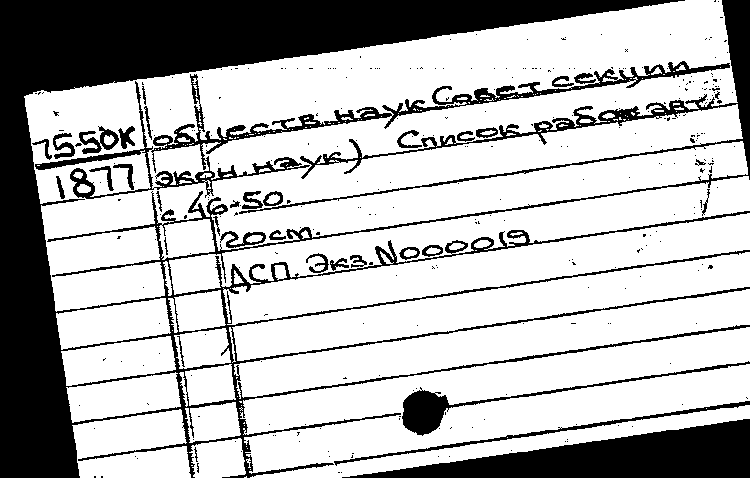 75-50К обществ. наук Совет секции
1877 экон. наук). Список работ авт.
с. 46-50.
20 см.
ДСП. Экз. N000019.